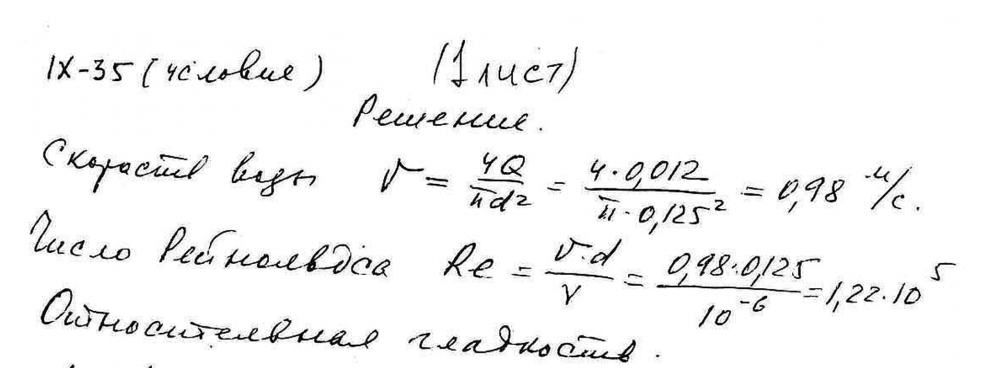 IX-35 (условие) (1 лист)
Решение.
Скорость воды V = 4Q/πd² = 4·0,012/π·0,125² = 0,98 м/с.
Число Рейнольдса Re = V·d/ν = 0,98·0,125/10⁻⁶ = 1,22·10⁵
Относительная гладкость.